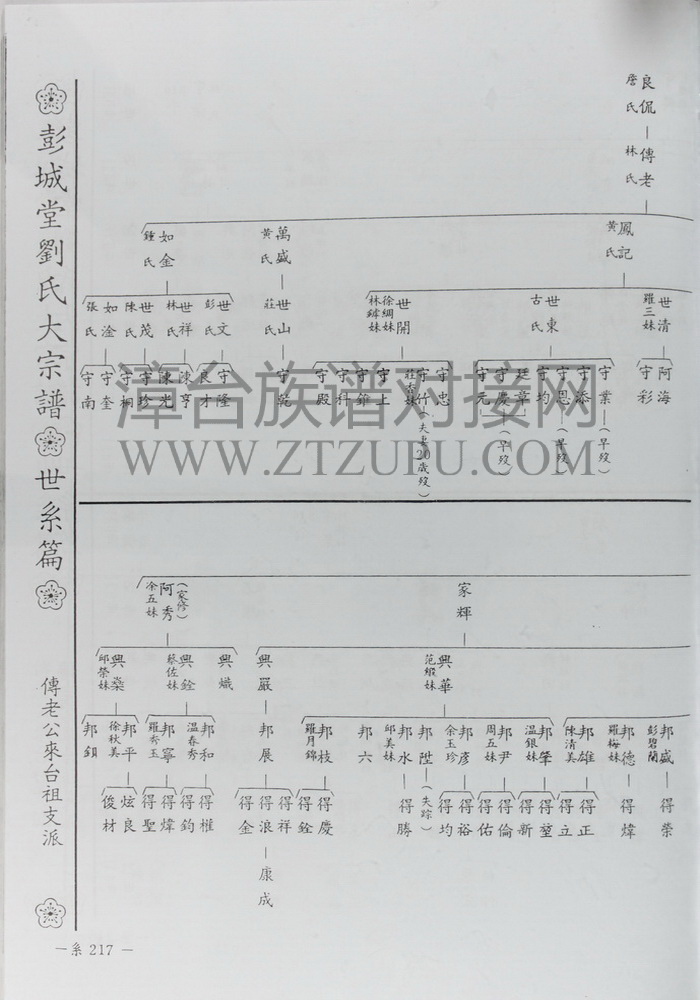 彭城堂劉氏大宗譜 世系篇
傳老公來台祖支派
良侃 詹氏
傳老 林氏
鳳記 黃氏
萬盛 黃氏
如金 鍾氏
世清 羅三妹
世東 古氏
世開 徐綢妹
世山 莊氏
世文 彭氏
世祥 林氏
世茂 陳氏
如淦 張氏
阿海
守彩
守業(早歿)
守添
守恩(早歿)
守均
廷章
守慶(早歿)
守元
守忠
守竹(夫妻20歲歿) 莊杏妹
守上
守錐
守科
守殿
守乾
守隆
良才
陳亨
陳光
守珍
守桐
守奎
守南
漳台族谱对接网
WWW.ZTZUPU.COM
家輝
阿秀(家修) 余五妹
興華 范緞妹
興嚴
興熾
興銓 蔡佐妹
興燊 邱榮妹
邦盛 彭碧蘭
邦德 羅梅妹
邦雄 陳清美
邦肇 溫銀妹
邦尹 周五妹
邦彥 余玉珍
邦陞(失踪)
邦水 邱美妹
邦六
邦枝 羅月錦
邦展
邦和 溫春秀
邦寧 羅秀玉
邦平 徐秋美
邦鎖
得榮
得煒
得正
得立
得堃
得新
得倫
得佑
得裕
得均
得勝
得慶
得銓
得祥
得浪
得金
康成
得權
得鈞
得煒
得聖
炫良
俊材
—系 217 —